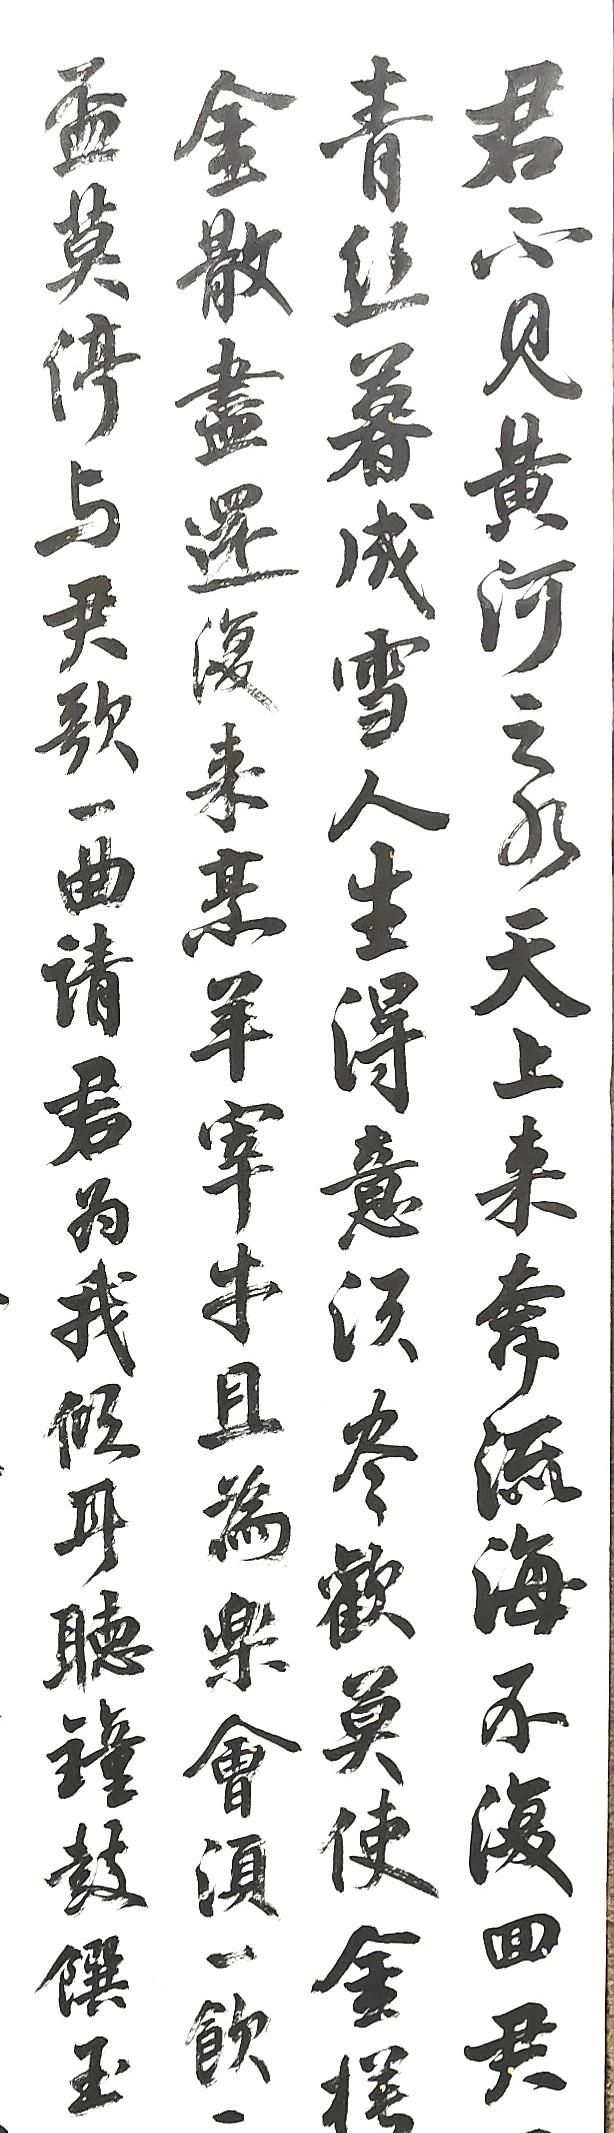 君不见黄河之水天上来奔流海不復回君
青丝暮成雪人生得意须尽歡莫使金樽
金散盡還復来烹羊宰牛且為樂會須一飲一
盃莫停与君歌一曲请君为我倾耳聽鐘鼓饌玉